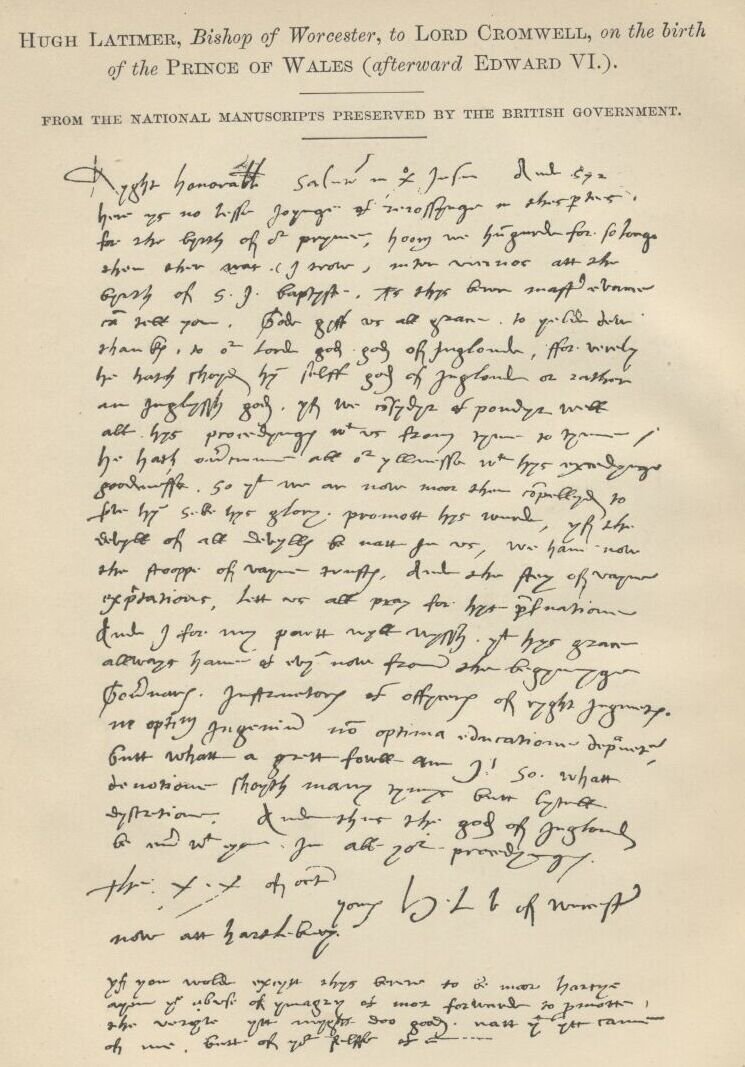 HUGH LATIMER, Bishop of Worcester, to LORD CROMWELL, on the birth
of the PRINCE OF WALES (afterward EDWARD VI.).
FROM THE NATIONAL MANUSCRIPTS PRESERVED BY THE BRITISH GOVERNMENT.
Ryght honorable Salutē in X Jesu And Syr
here ys no lesse joynge & rejossynge in thes ptees
for the byrth of or prynce, hoom we hūgurde for so longe
then ther was (I trow, inter vicinos att the
byrth of S. J. baptyste. As thys berer mastr evance
cā tell you. Gode gyff us all grace to yelde dew
thankes, to or lord gode gode of Inglonde, ffor verely
he hath shoyd hȳ selff gode of Inglonde or rather
an Inglyssh gode. yf we cōsydyr & pondyr well
all hys procedynges wt us from tyme to tyme /
he hath ovrcumme all or yllnesse wt hys excedynge
goodnesse. So yt we ar now moor then cōpellyd to
serve hȳ seke hys glory. promott hys wurde, yf the
devyll of all devylls be natt in us, we have now
the stooppe of vayne trustes, Ande the stey of vayne
expectations, lett us all pray for hys pservatione
Ande I for my partt wyll wyssh yt hys grace
allways have & evȳ now from the begynynge
Govrnares. Instructores & offyceres of ryght jugmente.
ne optimū Ingeniū nō optima educatione depravetr
butt whatt a grett fowll am I! So. whatt
devotione shoyth many tymys butt lytell
dyscretione. Ande thus the gode of Inglonde
be evr wt you. In all yor procedynges.
the of octr
yours H. L. b. of wurcestr
now att hartlebury.
yf you wolde excytt thys berer to be moor hartye
ayen ye abuse of ymagry & mor forwarde to pmotte
the veryte ytt myght doo goode. natt yt ytt came
of me, butt of yor selffe &c